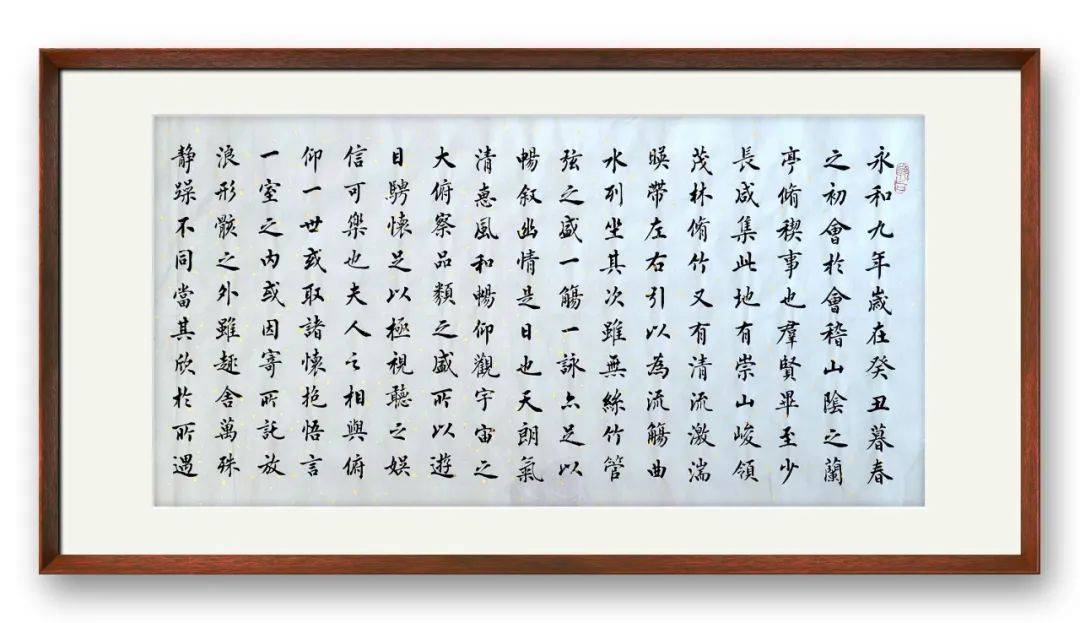 永和九年歲在癸丑暮春
之初會於會稽山陰之蘭
亭脩稧事也羣賢畢至少
長咸集此地有崇山峻領
茂林脩竹又有清流激湍
暎帶左右引以為流觴曲
水列坐其次雖無絲竹管
弦之盛一觴一詠亦足以
暢叙幽情是日也天朗氣
清惠風和暢仰觀宇宙之
大俯察品類之盛所以遊
目騁懷足以極視聽之娛
信可樂也夫人之相與俯
仰一世或取諸懷抱悟言
一室之內或因寄所託放
浪形骸之外雖趣舍萬殊
静躁不同當其欣於所遇